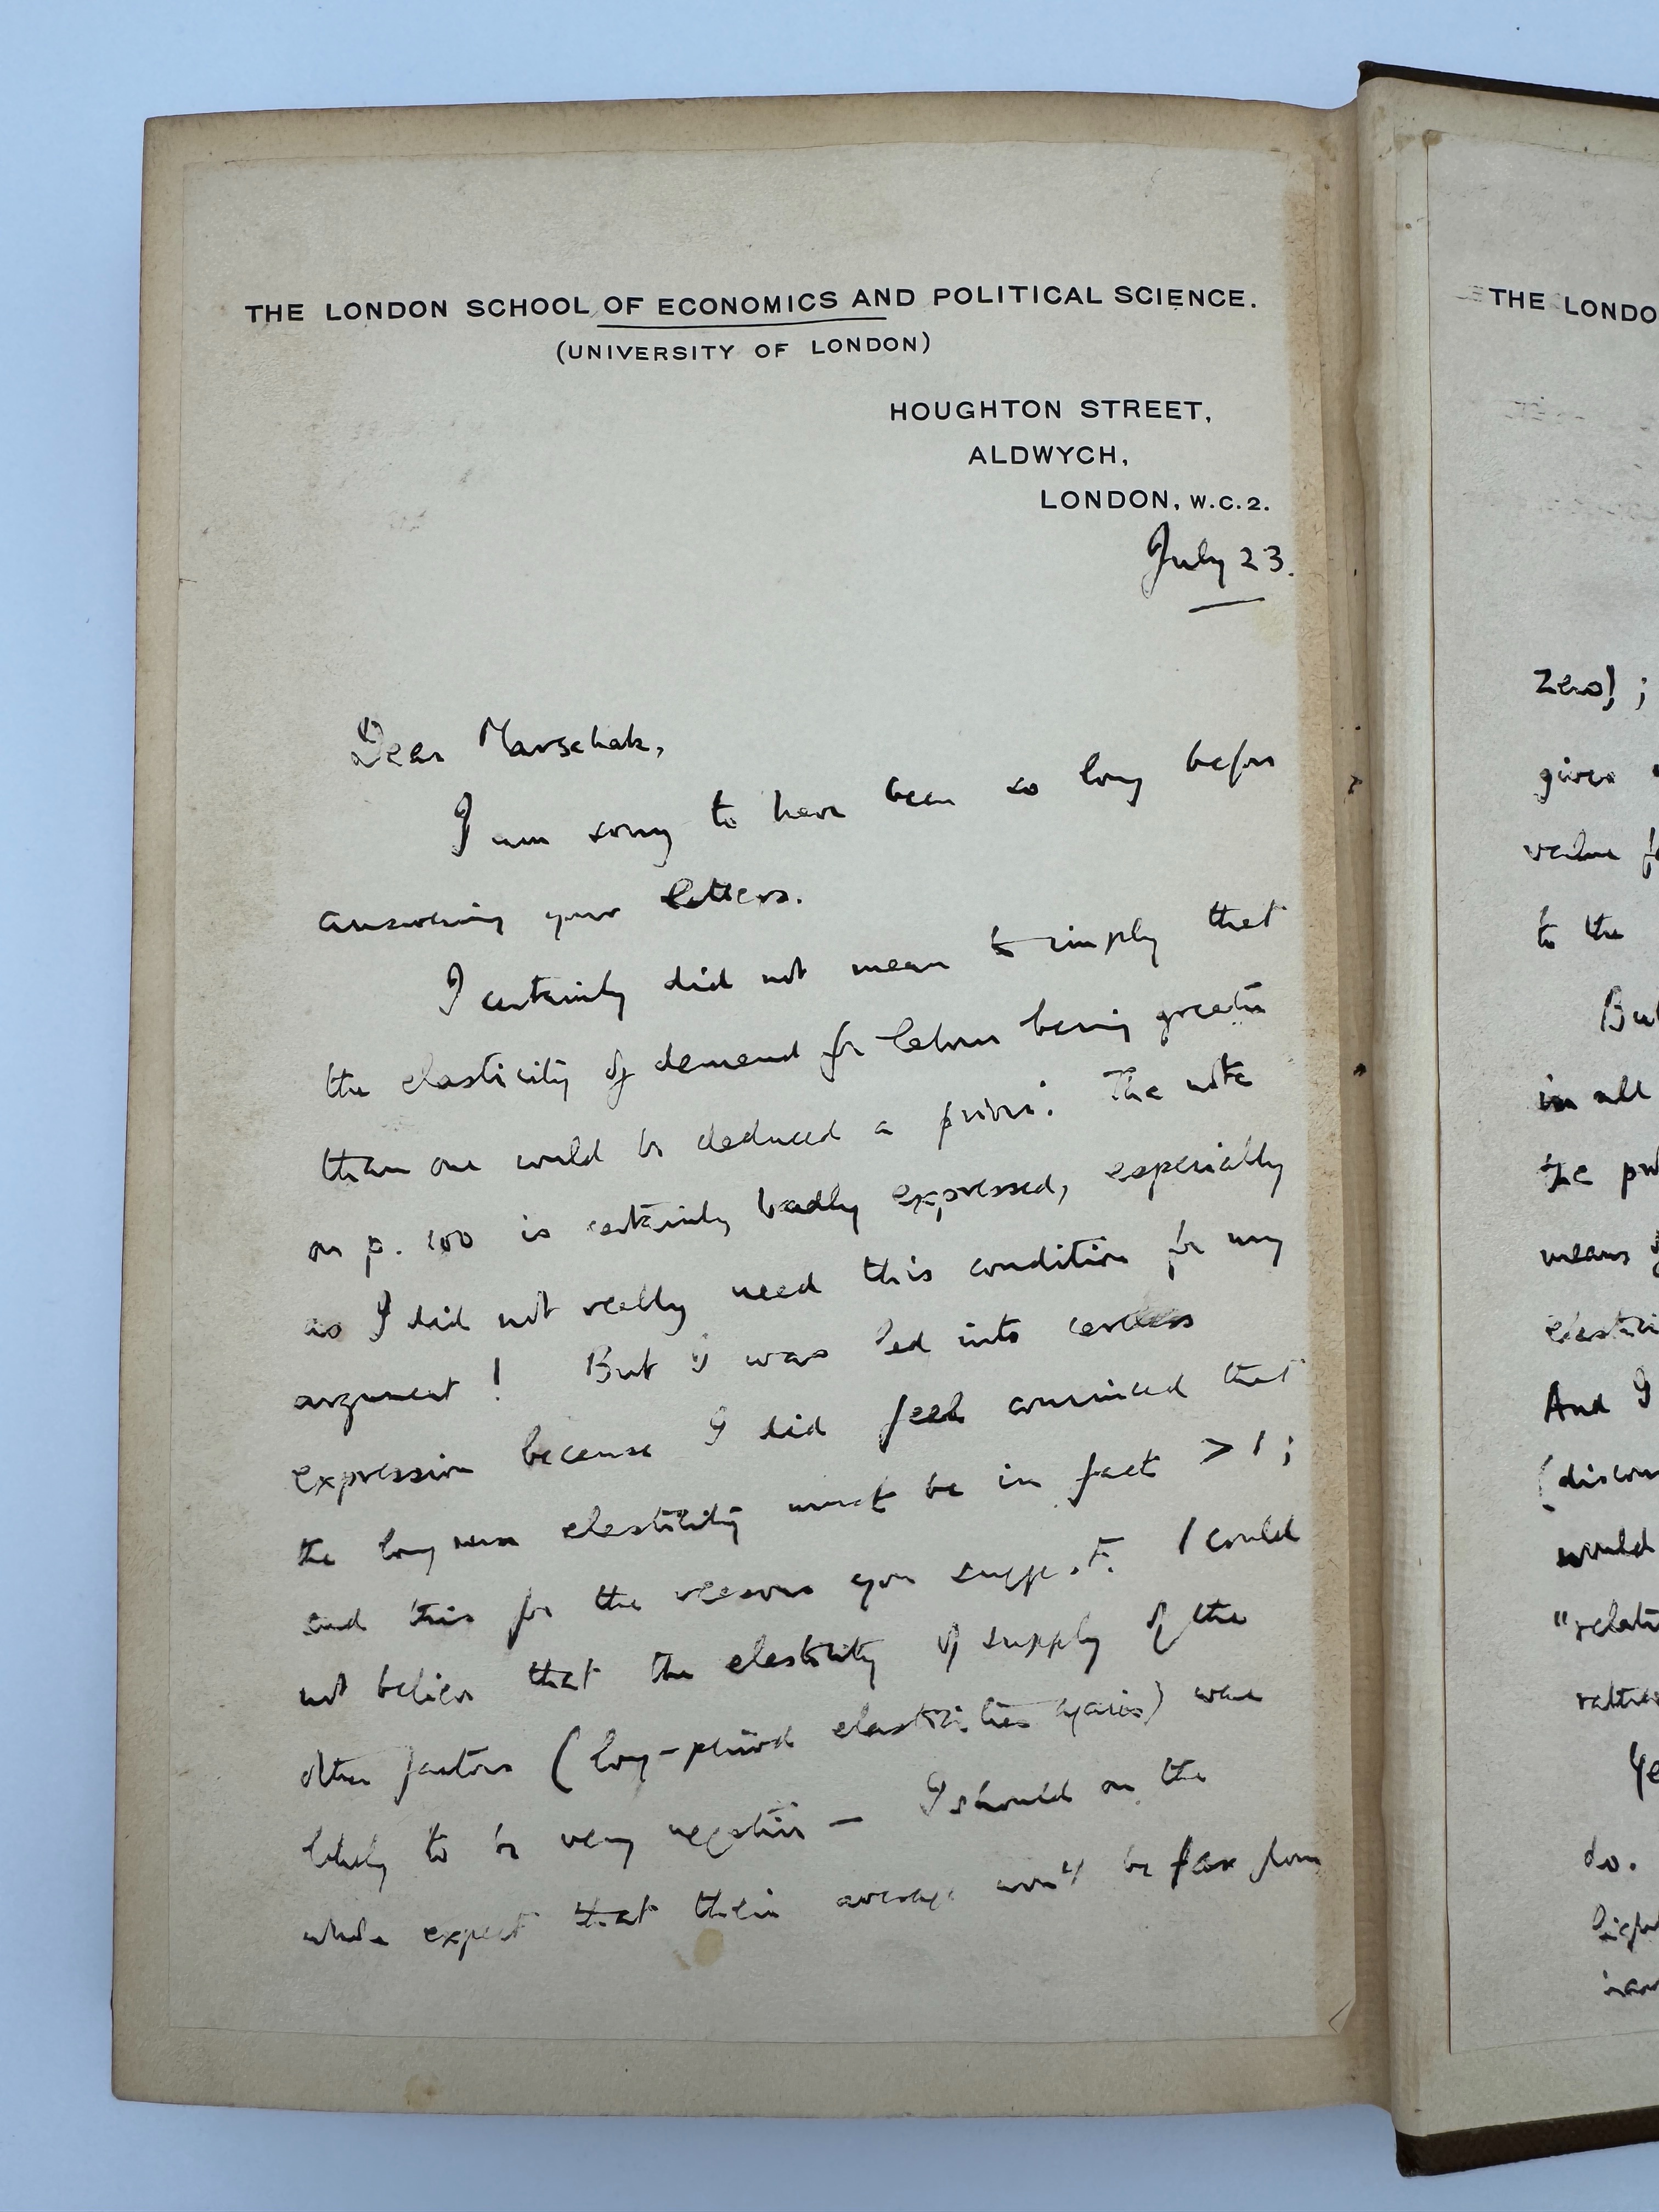 THE LONDON SCHOOL OF ECONOMICS AND POLITICAL SCIENCE.
(UNIVERSITY OF LONDON)
HOUGHTON STREET,
ALDWYCH,
LONDON, W.C.2.
July 23.
Dear Marschak,
I am sorry to have been so long before
answering your letters.
I certainly did not mean to imply that
the elasticity of demand for labour being greater
than one could be deduced a priori. The note
on p. 100 is certainly badly expressed, especially
as I did not really need this condition for my
argument! But I was led into careless
expression because I did feel convinced that
the long run elasticity must be in fact > 1;
and this for the reasons you suggest. I could
not believe that the elasticity of supply of the
other factors (long-period elasticities again) were
likely to be very negative — I should on the
whole expect that their average won't be far from
THE LONDO
zero);
given
value
to the
But
in all
the
means
And I
would
rather
do.